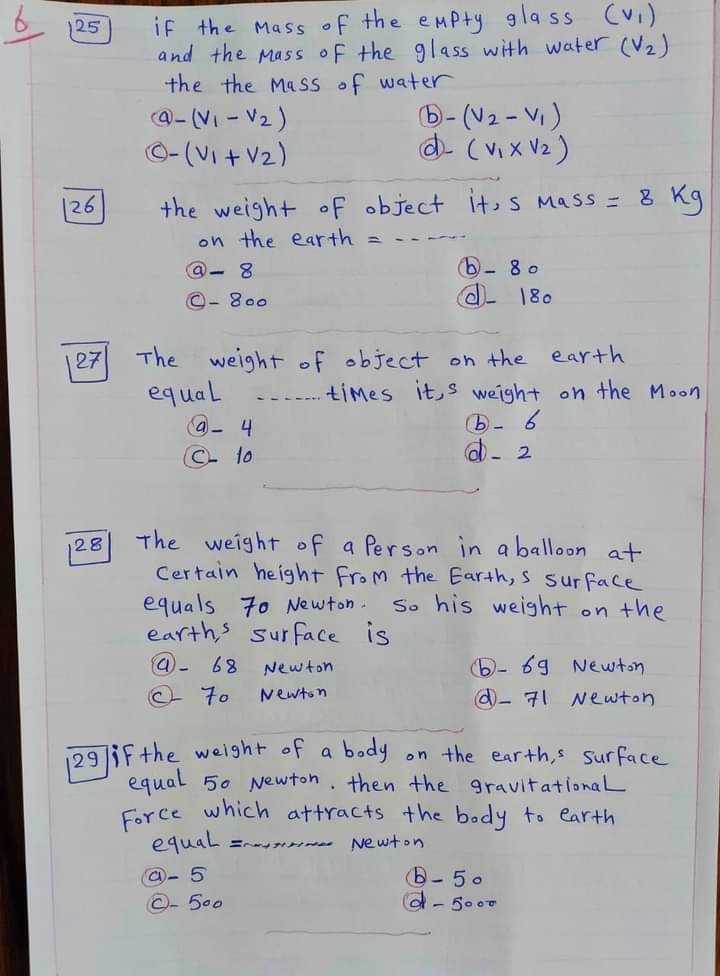 6
125 if the Mass of the empty glass (V1)
and the Mass of the glass with water (V2)
the the Mass of water
a- (V1 - V2) b- (V2 - V1)
c- (V1 + V2) d- (V1 x V2)
126 the weight of object it,s Mass = 8 Kg
on the earth = ------
a- 8 b- 80
c- 800 d- 180
127 The weight of object on the earth
equal ------- times it,s weight on the Moon
a- 4 b- 6
c- 10 d- 2
128 The weight of a Person in a balloon at
Certain height from the Earth,s surface
equals 70 Newton. So his weight on the
earth,s surface is
a- 68 Newton b- 69 Newton
c- 70 Newton d- 71 Newton
129 if the weight of a body on the earth,s surface
equal 50 Newton. then the gravitational
Force which attracts the body to earth
equal =.......... Newton
a- 5 b- 50
c- 500 d- 5000